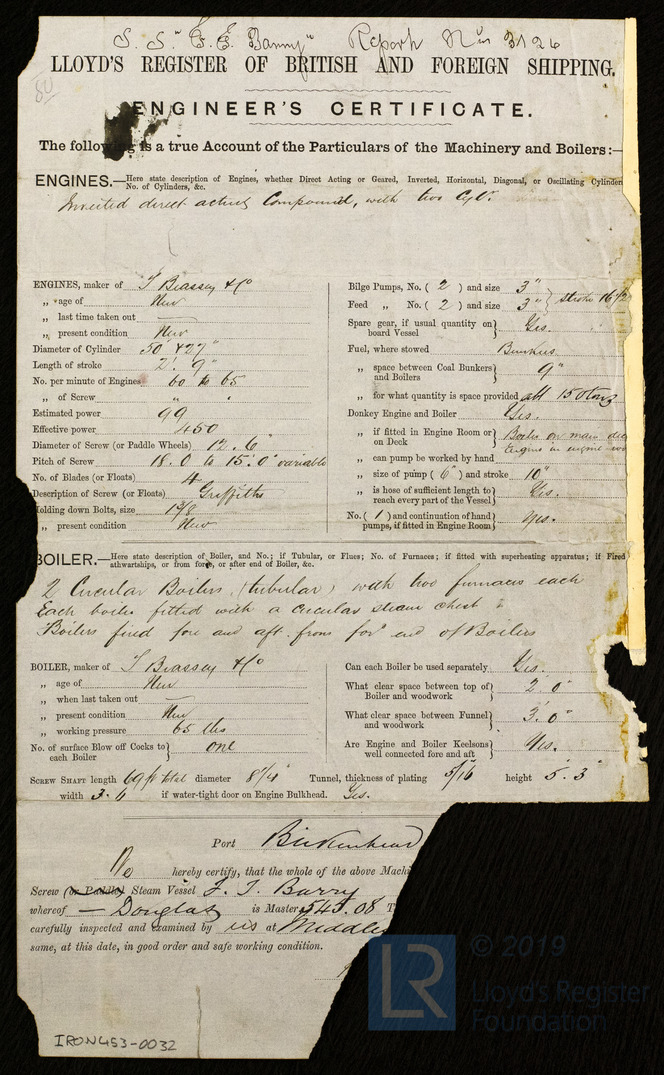 S. S. "F. T. Barry" Report No 3126
LLOYD'S REGISTER OF BRITISH AND FOREIGN SHIPPING.
80
ENGINEER'S CERTIFICATE.
The following is a true Account of the Particulars of the Machinery and Boilers:—
ENGINES.—Here state description of Engines, whether Direct Acting or Geared, Inverted, Horizontal, Diagonal, or Oscillating Cylinder
No. of Cylinders, &c.
Inverted direct acting Compound, with two Cylrs
ENGINES, maker of T Brassey & Co
„ age of New
„ last time taken out —
„ present condition New
Diameter of Cylinder 50" & 27"
Length of stroke 2'. 9"
No. per minute of Engines 60 to 65
„ of Screw „ „
Estimated power 99
Effective power 450
Diameter of Screw (or Paddle Wheels) 12. 6
Pitch of Screw 18. 0 to 15'. 0" variable
No. of Blades (or Floats) 4
Description of Screw (or Floats) Griffiths
Holding down Bolts, size 1 5/8
„ present condition New
Bilge Pumps, No. ( 2 ) and size 3"
Feed „ No. ( 2 ) and size 3" } stroke 16 1/2
Spare gear, if usual quantity on board Vessel } Yes.
Fuel, where stowed Bunkers
„ space between Coal Bunkers and Boilers } 9"
„ for what quantity is space provided abt 150 tons
Donkey Engine and Boiler Yes.
„ if fitted in Engine Room or on Deck } Boiler on main dec
Engine in engine roo
„ can pump be worked by hand
„ size of pump ( 6" ) and stroke 10"
„ is hose of sufficient length to reach every part of the Vessel } Yes.
No. ( 1 ) and continuation of hand pumps, if fitted in Engine Room } yes.
BOILER.—Here state description of Boiler, and No.; if Tubular, or Flues; No. of Furnaces; if fitted with superheating apparatus; if Fired
athwartships, or from fore, or after end of Boiler, &c.
2 Circular Boilers, (tubular) with two furnaces each
Each boiler fitted with a circular steam chest &
Boilers fired fore and aft from for'd end of Boilers
BOILER, maker of T Brassey & Co
„ age of New
„ when last taken out —
„ present condition New
„ working pressure 65 lbs
No. of surface Blow off Cocks to each Boiler } one
Can each Boiler be used separately Yes.
What clear space between top of Boiler and woodwork } 2'. 0"
What clear space between Funnel and woodwork } 3'. 0"
Are Engine and Boiler Keelsons well connected fore and aft } Yes.
SCREW SHAFT length 69 ft total diameter 8 1/4" Tunnel, thickness of plating 5/16 height 5. 3"
width 3. 6 if water-tight door on Engine Bulkhead. Yes.
Port Birkenhead
We hereby certify, that the whole of the above Machi
Screw (or Paddle) Steam Vessel F. T. Barry
whereof — Douglas is Master, 543.08 T
carefully inspected and examined by us at Middles
same, at this date, in good order and safe working condition.
IRON453-0032
LR
© 2019
Lloyd's Register
Foundation